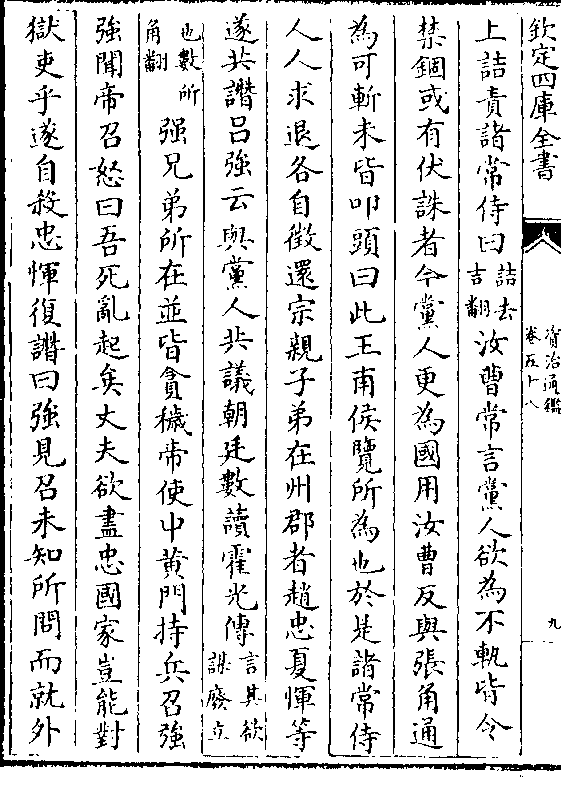 欽定四庫全書
資治通鑑
卷五十八
九
上詰責諸常侍曰詰去吉翻汝曹常言黨人欲為不軌皆令
禁錮或有伏誅者今黨人更為國用汝曹反與張角通
為可斬未皆叩頭曰此王甫侯覽所為也於是諸常侍
人人求退各自徵還宗親子弟在州郡者趙忠夏惲等
遂共譖呂強云與黨人共議朝廷數讀霍光傳言其欲謀廢立
也數所角翻强兄弟所在並皆貪穢帝使中黄門持兵召強
強聞帝召怒曰吾死亂起矣丈夫欲盡忠國家豈能對
獄吏乎遂自殺忠惲復譖曰強見召未知所問而就外